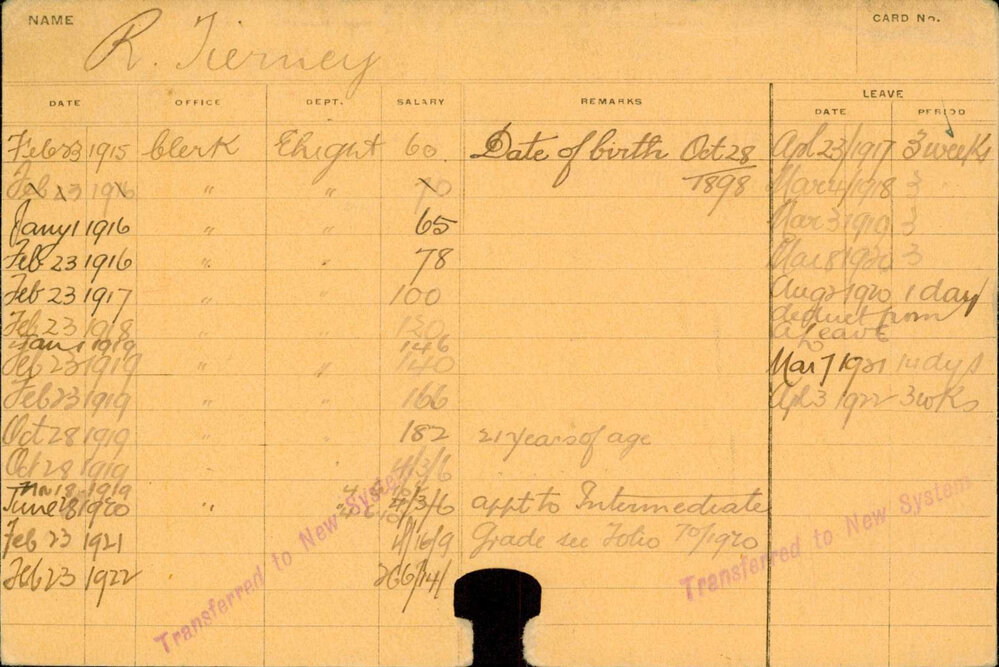 NAME
CARD No.
R. Tierney
LEAVE
DATE OFFICE DEPT. SALARY REMARKS DATE PERIOD
Feb 23 1915 Clerk Ehight 60 Date of birth Oct 28 Apl 23/1917 3 weeks
Feb 23 1916 " " 70 1898 Mar 4/1918 3
Jany 1 1916 " " 65 Mar 3 1919 3
Feb 23 1916 " " 78 Mar 8 1920 3
Feb 23 1917 " " 100 Aug 2 1920 1 day
Feb 23 1918 " " 120 deduct from
Jan 1 1919 146 a/Leave
Feb 23 1919 " " 140 Mar 7 1921 14 dys
Feb 23 1919 " " 166 Apl 3 1922 3 wks
Oct 28 1919 " " 182 21 years of age
Oct 28 1919 4/3/6
1919
June 28 1920 " 4/3/6 appt to Intermediate
Feb 23 1921 4/16/9 Grade see Folio 70/1920
Feb 23 1922 266/14/
Transferred to New System
Transferred to New System